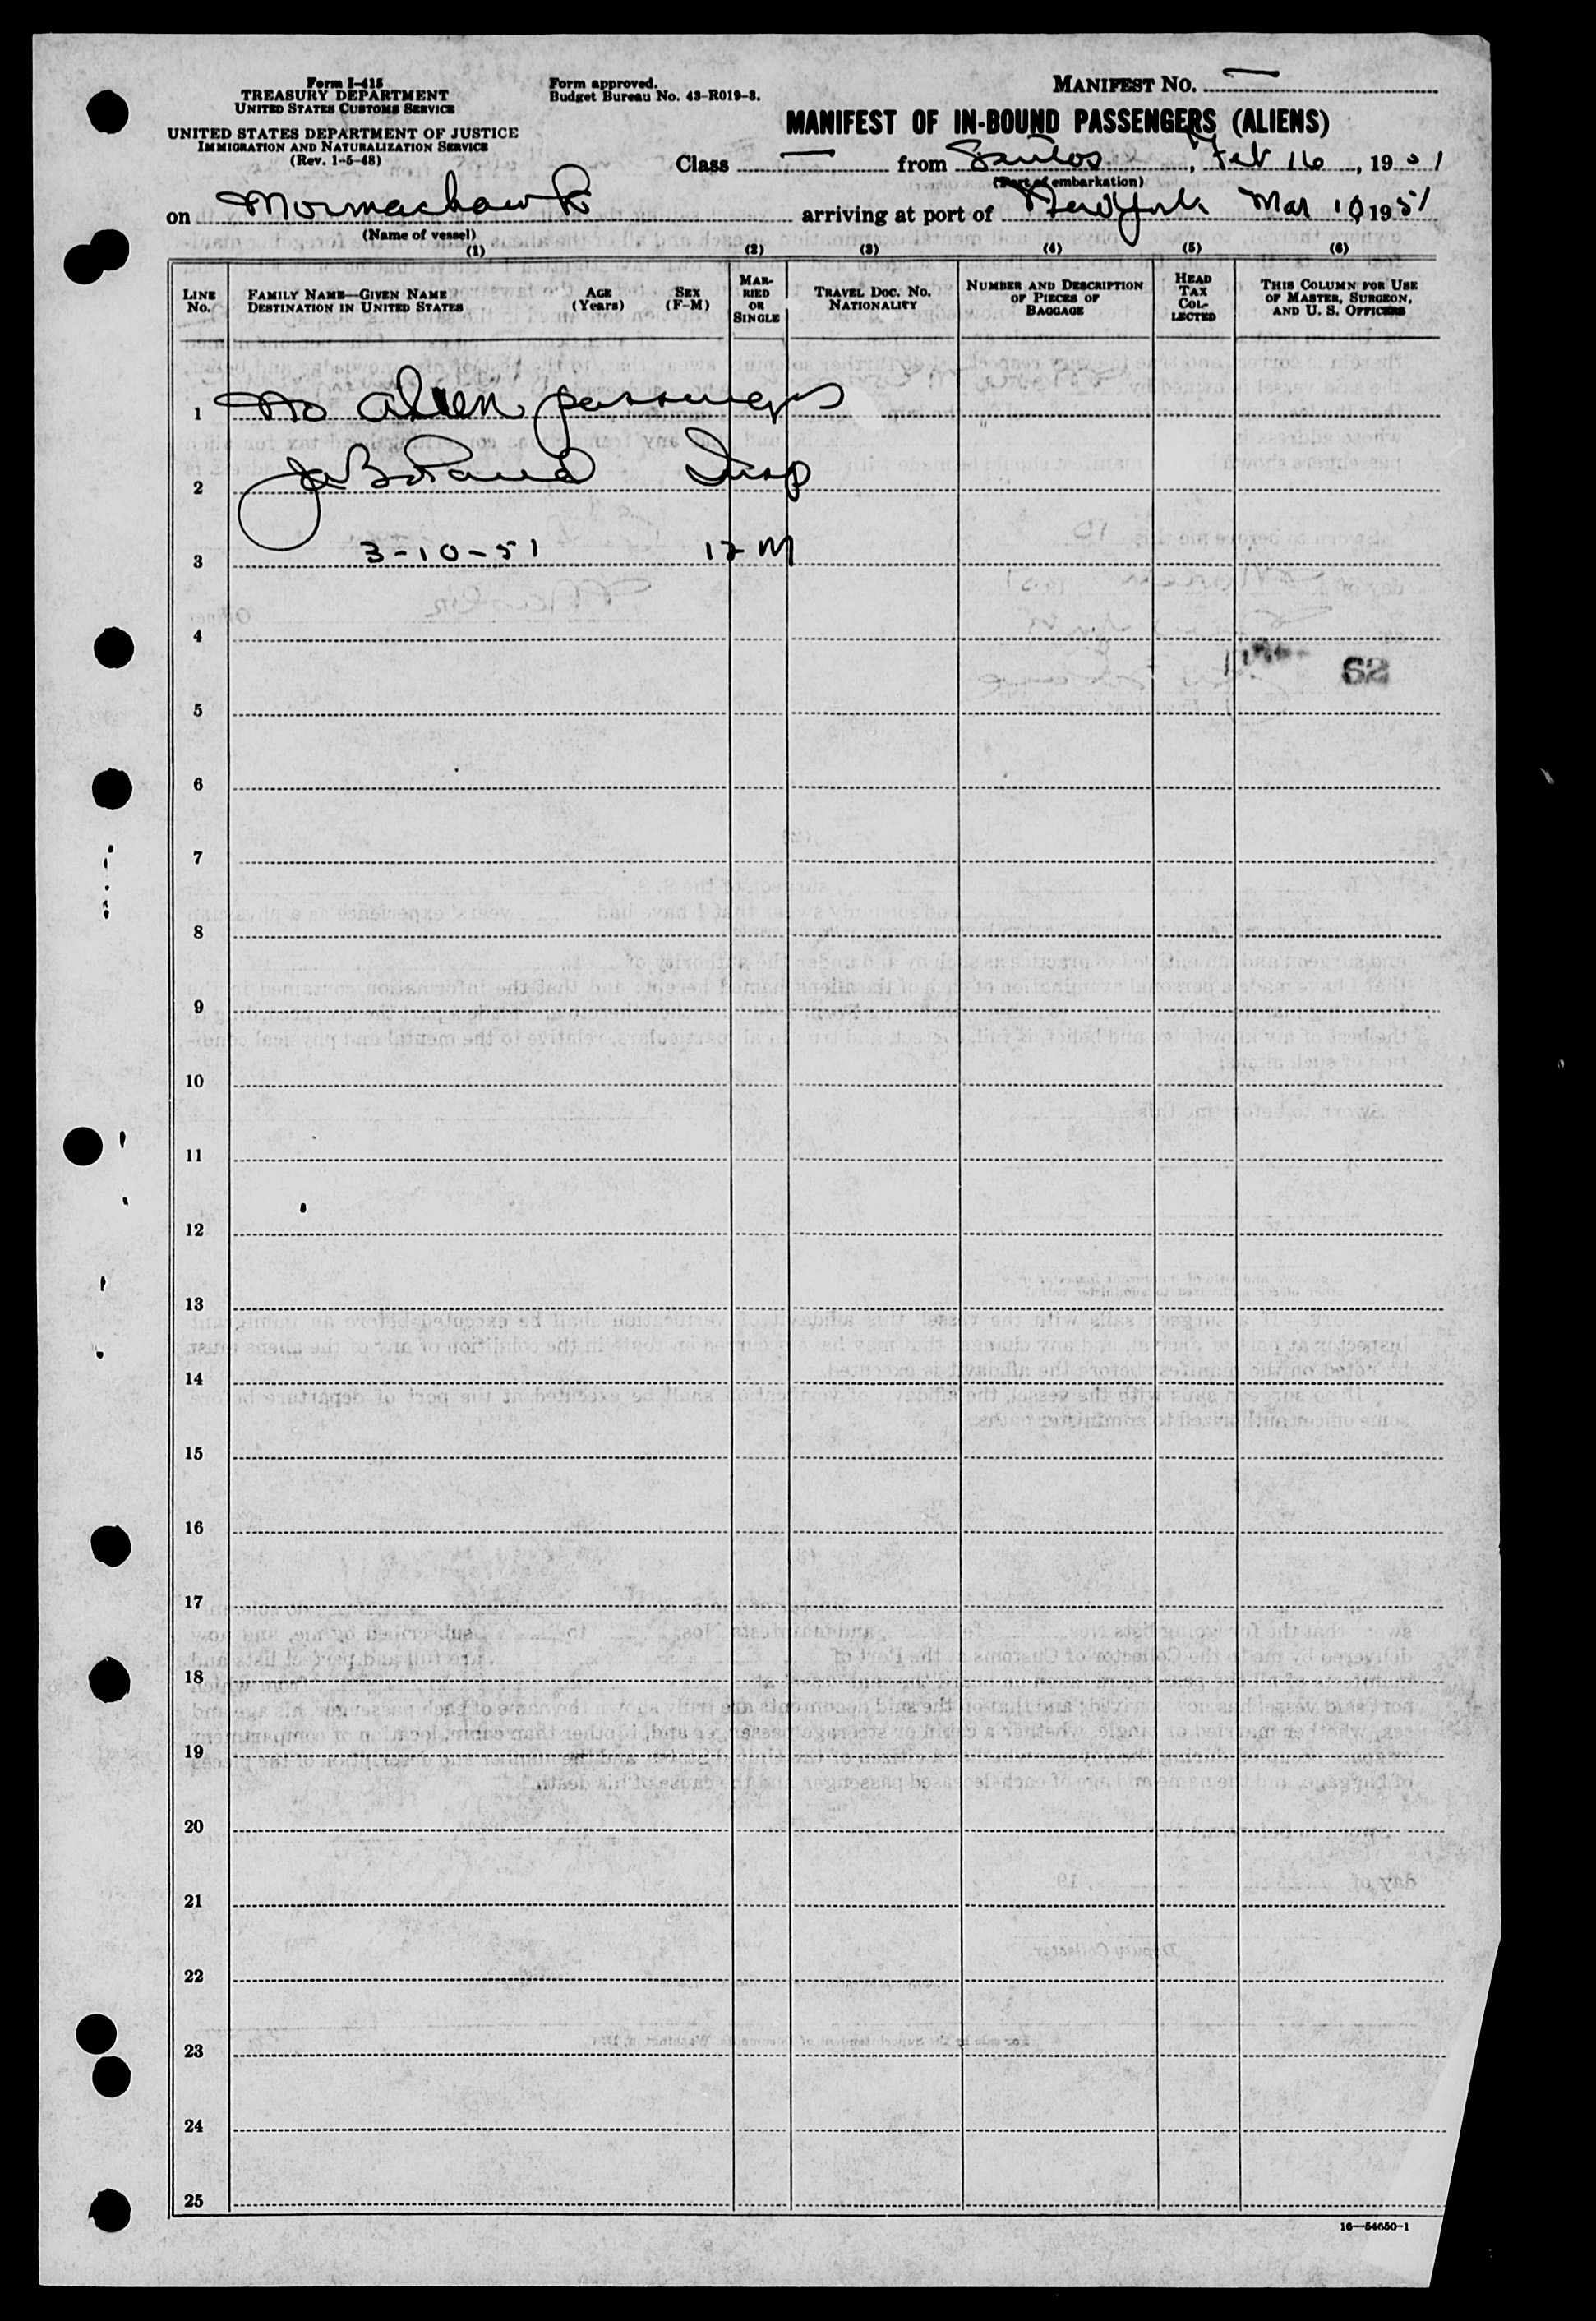 Form I-415
TREASURY DEPARTMENT
UNITED STATES CUSTOMS SERVICE
UNITED STATES DEPARTMENT OF JUSTICE
IMMIGRATION AND NATURALIZATION SERVICE
(Rev. 1-5-48)
Form approved.
Budget Bureau No. 43-R019-3.
MANIFEST NO.
MANIFEST OF IN-BOUND PASSENGERS (ALIENS)
Class from Santos, Feb 16, 1951
(Port of embarkation)
on Mormachawk arriving at port of New York Mar 10, 1951
(Name of vessel)
(1) (2) (3) (4) (5) (6)
LINE No.
FAMILY NAME—GIVEN NAME
DESTINATION IN UNITED STATES
AGE (Years)
SEX (F-M)
MARRIED OR SINGLE
TRAVEL DOC. NO.
NATIONALITY
NUMBER AND DESCRIPTION OF PIECES OF BAGGAGE
HEAD TAX COLLECTED
THIS COLUMN FOR USE OF MASTER, SURGEON, AND U. S. OFFICERS
1 No alien passengers
2 Insp
3 3-10-51 12 M
4
62
5
6
7
8
9
10
11
12
13
14
15
16
17
18
19
20
21
22
23
24
25
16—54650-1